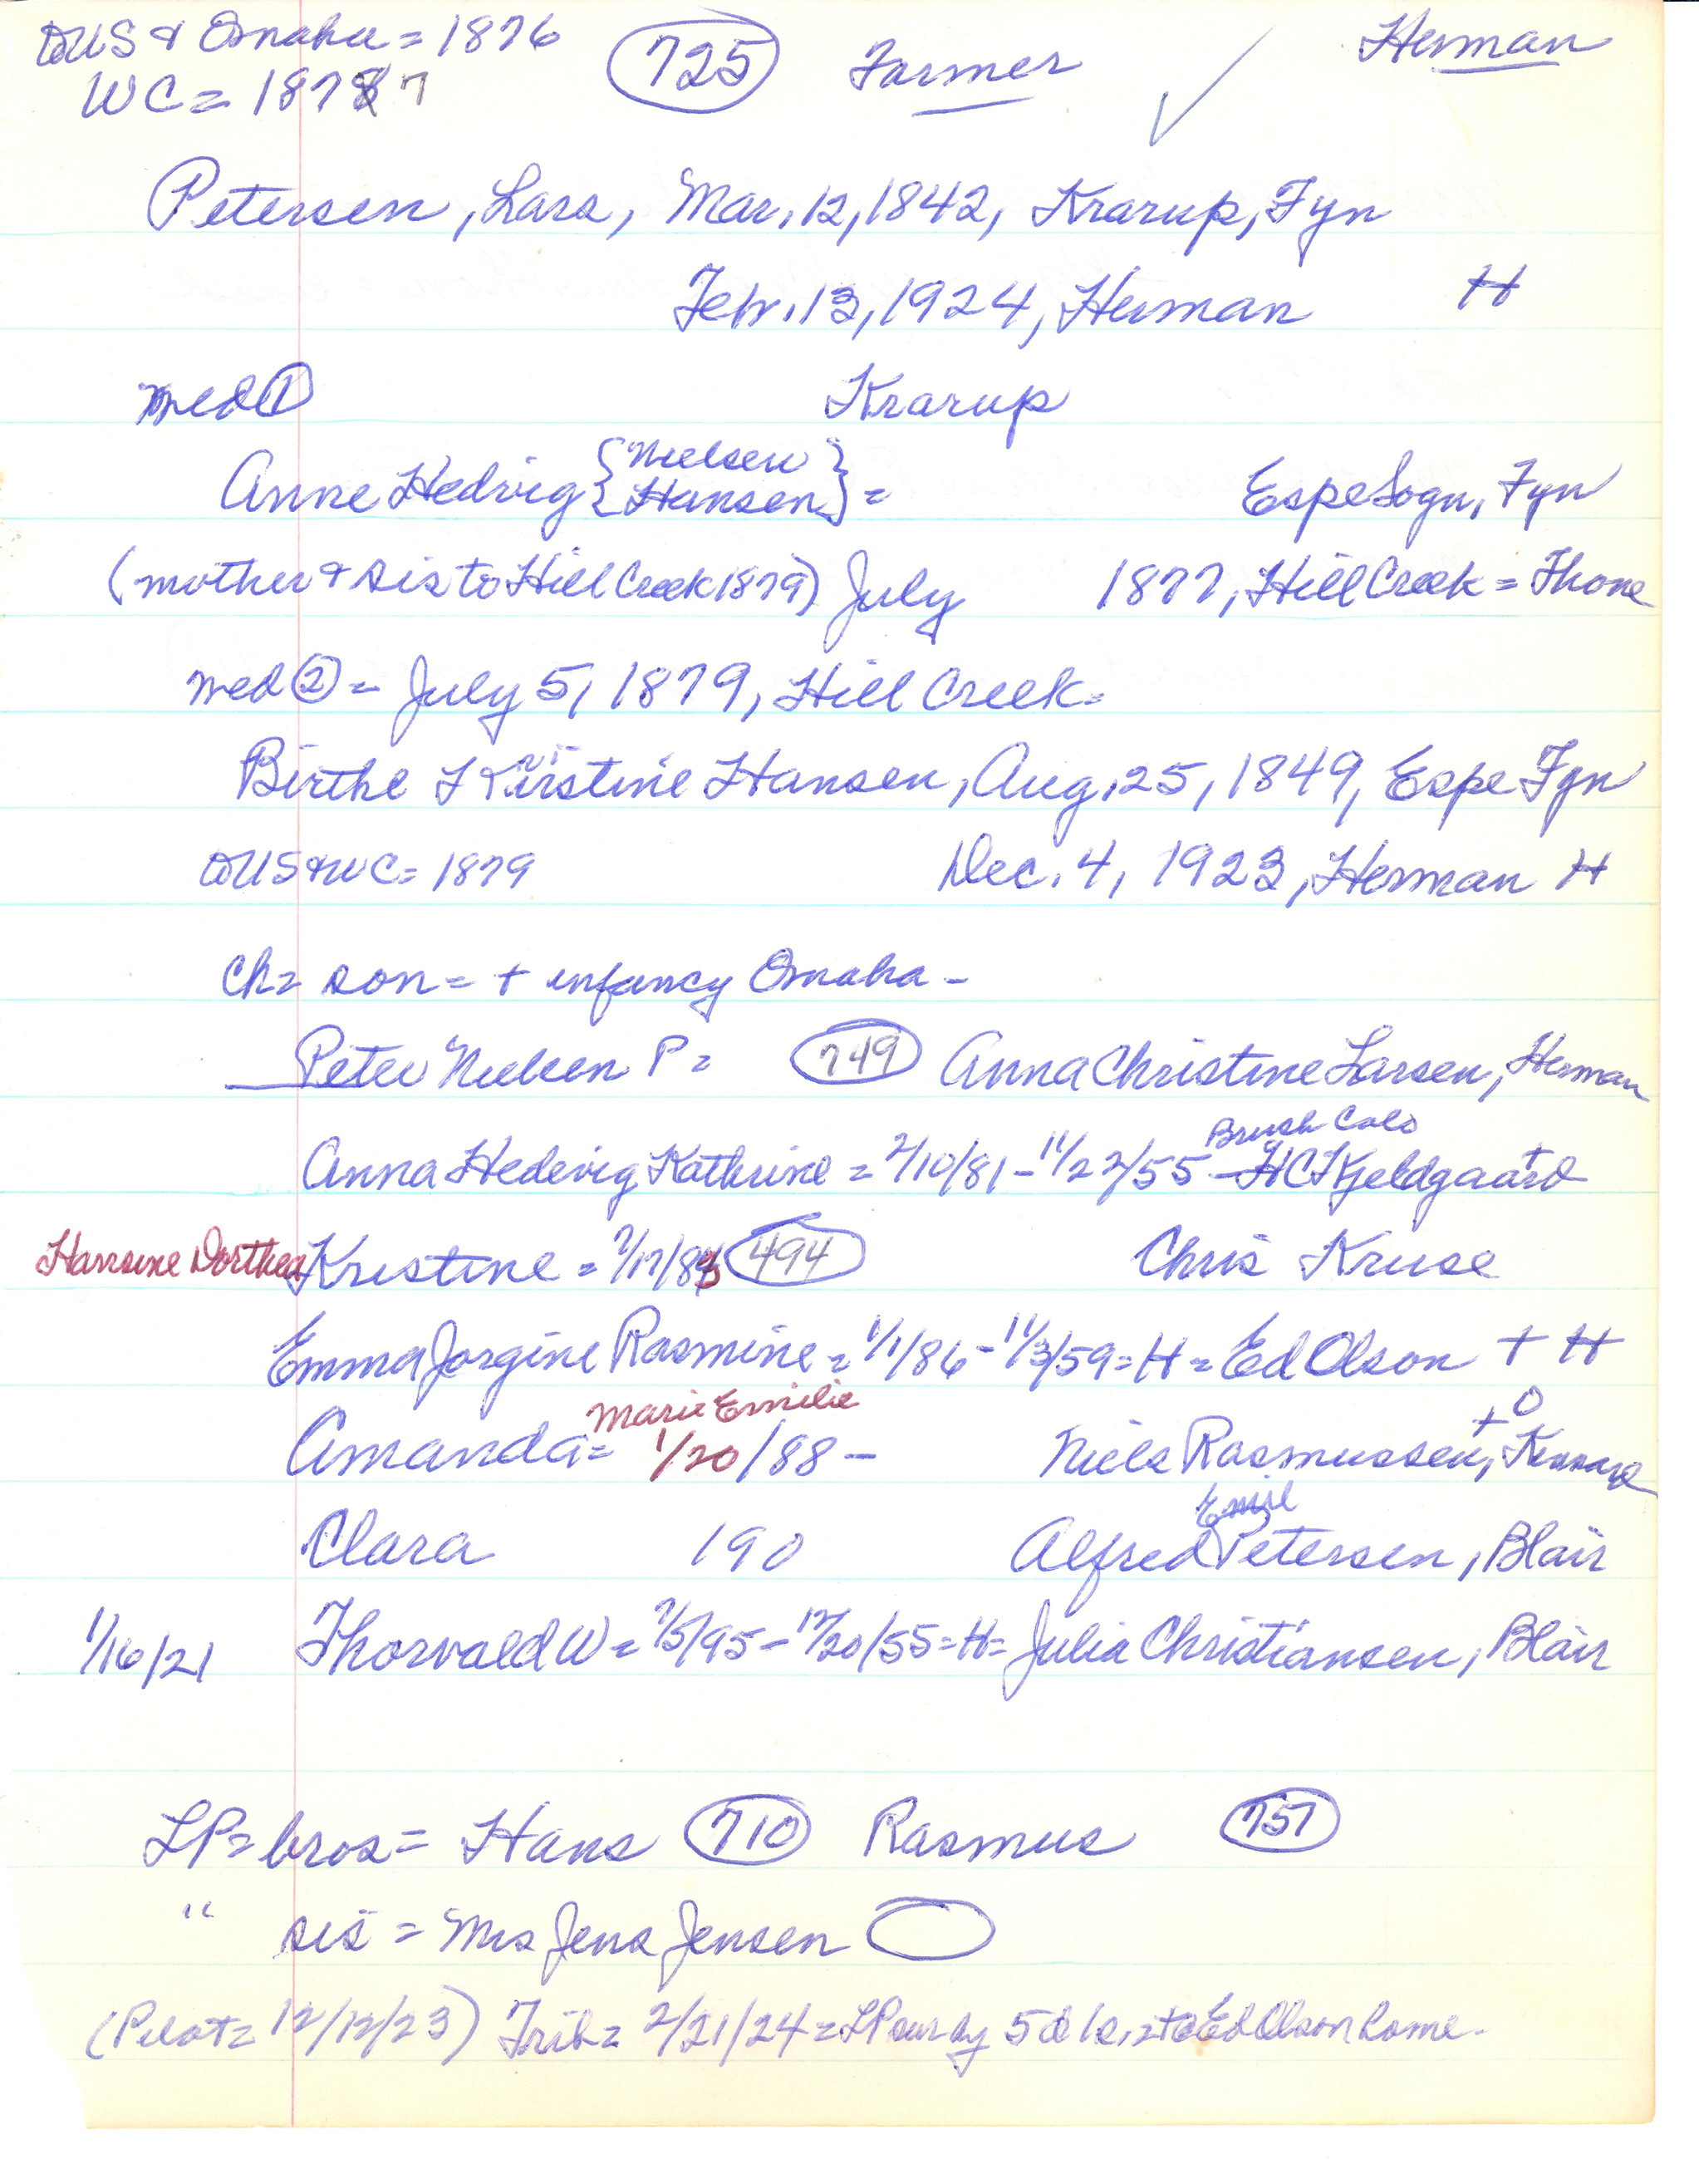 US & Omaha = 1876
WC = 1877
725 Farmer Herman
Petersen, Lars, Mar. 12, 1842, Krarup, Fyn
Feb. 13, 1924, Herman H
med ① Krarup
Anne Hedvig {Nielsen Hansen} = Espe Sogn, Fyn
(mother & sis to Hill Creek 1879) July 1877, Hill Creek = Thone
med ② = July 5, 1879, Hill Creek =
Birthe Kirstine Hansen, Aug. 25, 1849, Espe Fyn
US & WC = 1879 Dec. 4, 1923, Herman H
ch = son = + infancy Omaha -
Peter Nielsen P = 749 Anna Christine Larsen, Herman
Brush Colo
Anna Hedevig Kathrine = 2/10/81 - 11/22/55 - HC Kjeldgaard +
Hansine Dorthea Kristine = 7/17/83 494 Chris Kruse
Emma Jorgine Rasmine = 1/1/86 - 11/3/59 = H = Ed Olson + H
Marie Emilie
Amanda = 1/20/88 - Niels Rasmussen, + O Kennard
Emil
Clara 190 Alfred Petersen, Blair
1/16/21 Thorvald W = 7/5/95 - 12/20/55 = H = Julia Christiansen, Blair
LP = bros = Hans 710 Rasmus 757
" sis = Mrs Jens Jensen
(Pilot = 12/12/23) Trib = 2/21/24 = LP sur by 5 d 1 s, = to Ed Olson home.